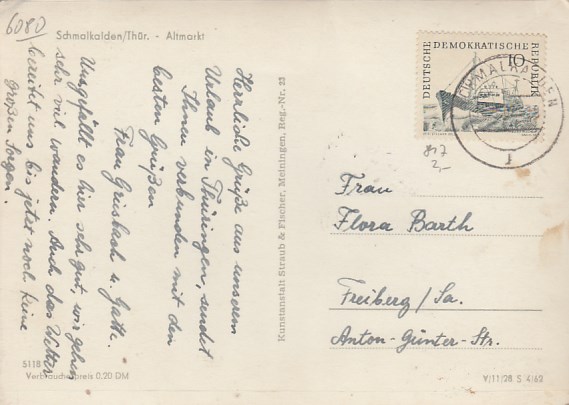 6080
Schmalkalden/Thür. - Altmarkt
Herrliche Grüße aus unserem
Urlaub in Thüringen, sendet
Ihnen verbunden mit den
besten Grüßen
Frau Grisbach u. Gatte.
Uns gefällt es hier sehr gut, wir gehen
sehr viel wandern. Auch das Wetter
bereitet uns bis jetzt noch keine
großen Sorgen.
5118
Verbraucherpreis 0,20 DM
Kunstanstalt Straub & Fischer, Meiningen, Reg.-Nr. 23
DEUTSCHE DEMOKRATISCHE REPUBLIK
10
SCHMALKALDEN
817
2,-
Frau
Flora Barth
Freiberg/Sa.
Anton-Günter-Str.
V/11/28 S 4/62